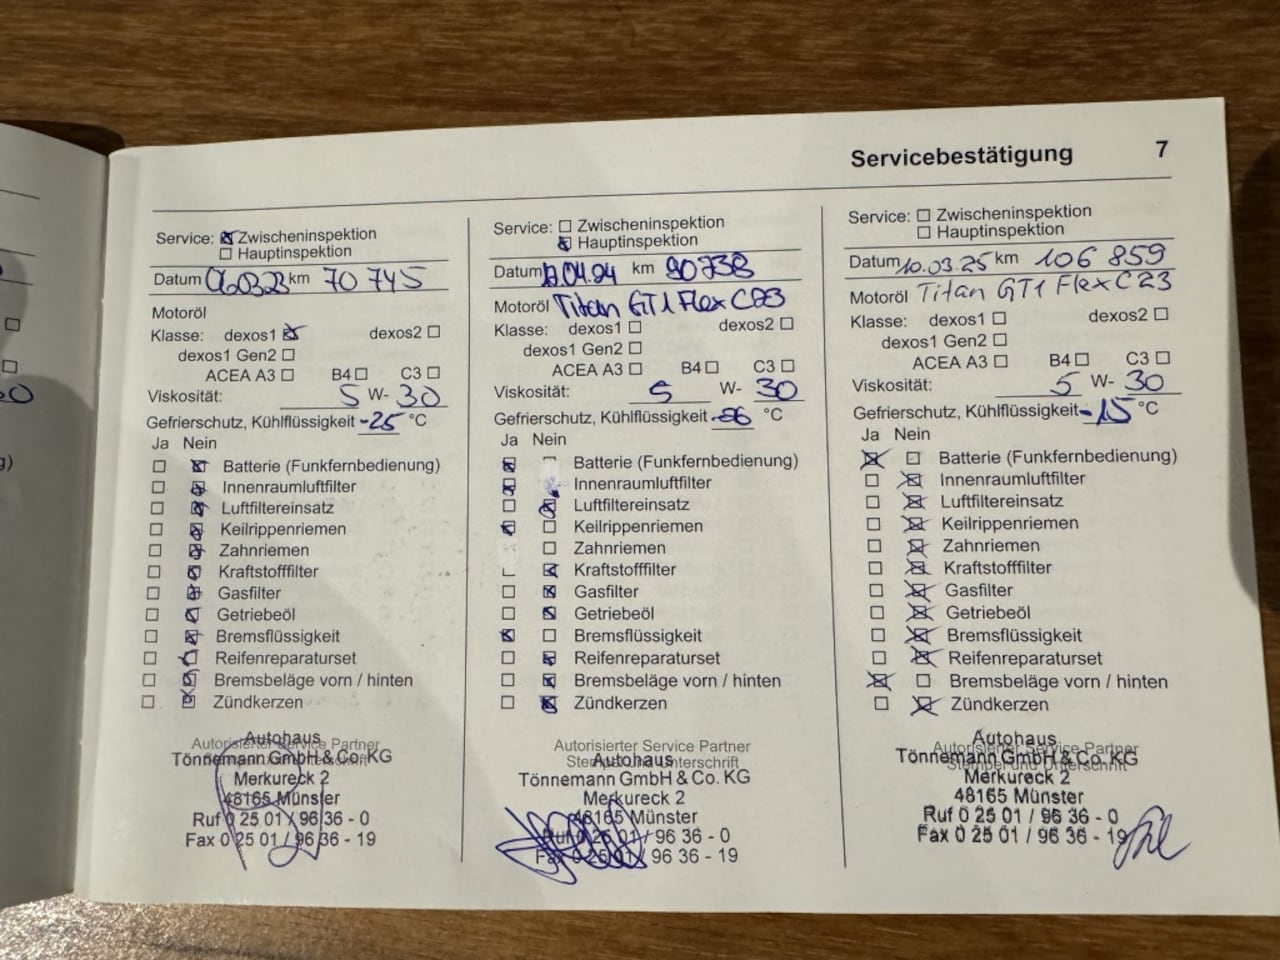 Servicebestätigung 7
Service: Zwischeninspektion
Hauptinspektion
Datum km 70 745
Motoröl
Klasse: dexos1 dexos2
dexos1 Gen2
ACEA A3 B4 C3
Viskosität: 5 W- 30
Gefrierschutz, Kühlflüssigkeit -25 °C
Ja Nein
Batterie (Funkfernbedienung)
Innenraumluftfilter
Luftfiltereinsatz
Keilrippenriemen
Zahnriemen
Kraftstofffilter
Gasfilter
Getriebeöl
Bremsflüssigkeit
Reifenreparaturset
Bremsbeläge vorn / hinten
Zündkerzen
Autorisierter Service Partner
Autohaus
Tönnemann GmbH & Co. KG
Merkureck 2
48165 Münster
Ruf 0 25 01 / 96 36 - 0
Fax 0 25 01 / 96 36 - 19
Service: Zwischeninspektion
Hauptinspektion
Datum 04.24 km 90738
Motoröl Titan GT1 Flex C23
Klasse: dexos1 dexos2
dexos1 Gen2
ACEA A3 B4 C3
Viskosität: 5 W- 30
Gefrierschutz, Kühlflüssigkeit °C
Ja Nein
Batterie (Funkfernbedienung)
Innenraumluftfilter
Luftfiltereinsatz
Keilrippenriemen
Zahnriemen
Kraftstofffilter
Gasfilter
Getriebeöl
Bremsflüssigkeit
Reifenreparaturset
Bremsbeläge vorn / hinten
Zündkerzen
Autorisierter Service Partner
Stempel und Unterschrift
Autohaus
Tönnemann GmbH & Co. KG
Merkureck 2
48165 Münster
Ruf 0 25 01 / 96 36 - 0
Fax 0 25 01 / 96 36 - 19
Service: Zwischeninspektion
Hauptinspektion
Datum 10.03.25 km 106 859
Motoröl Titan GT1 Flex C23
Klasse: dexos1 dexos2
dexos1 Gen2
ACEA A3 B4 C3
Viskosität: 5 W- 30
Gefrierschutz, Kühlflüssigkeit -15 °C
Ja Nein
Batterie (Funkfernbedienung)
Innenraumluftfilter
Luftfiltereinsatz
Keilrippenriemen
Zahnriemen
Kraftstofffilter
Gasfilter
Getriebeöl
Bremsflüssigkeit
Reifenreparaturset
Bremsbeläge vorn / hinten
Zündkerzen
Autorisierter Service Partner
Stempel und Unterschrift
Autohaus
Tönnemann GmbH & Co. KG
Merkureck 2
48165 Münster
Ruf 0 25 01 / 96 36 - 0
Fax 0 25 01 / 96 36 - 19